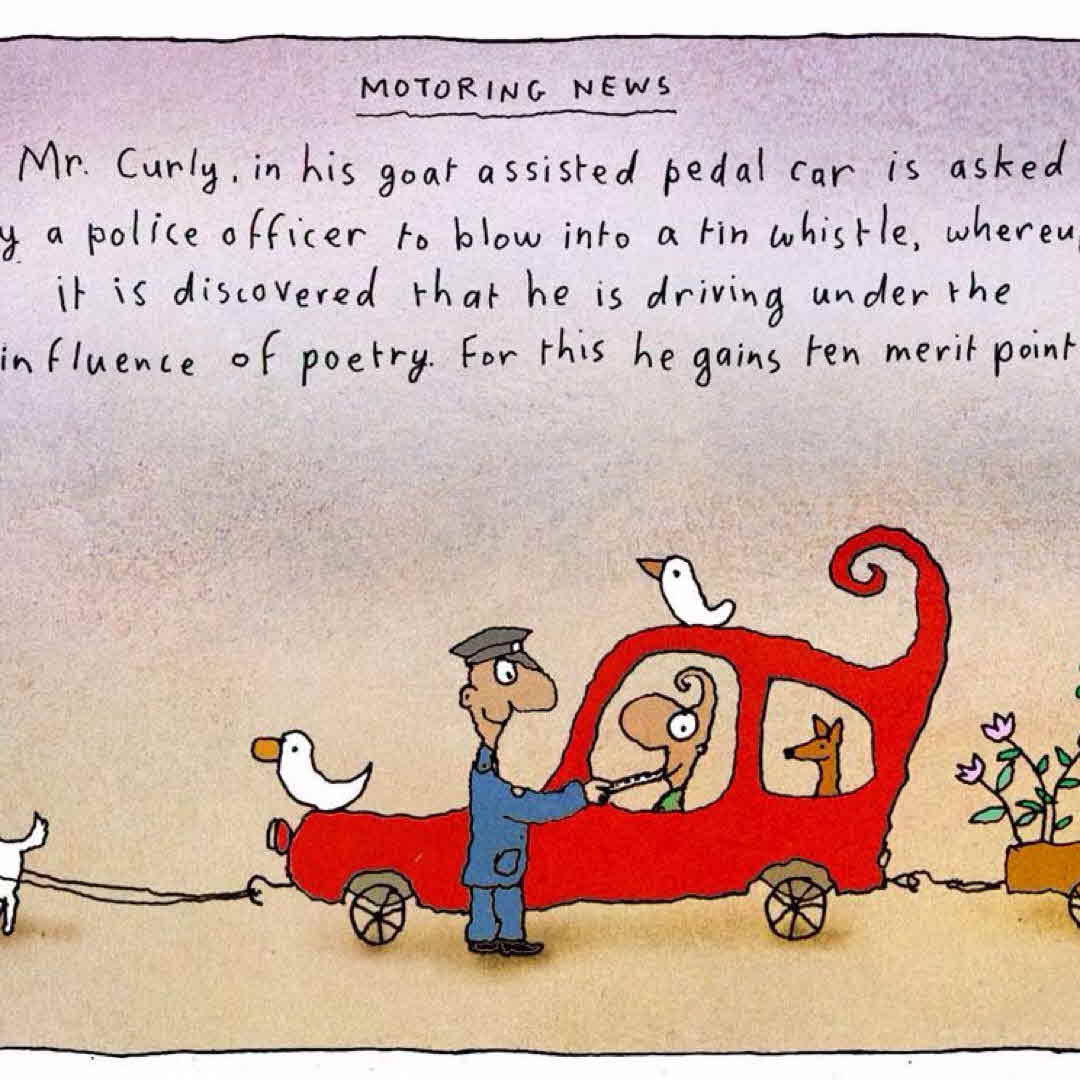 MOTORING NEWS
Mr. Curly, in his goat assisted pedal car is asked
y a police officer to blow into a tin whistle, whereu
it is discovered that he is driving under the
influence of poetry. For this he gains ten merit point